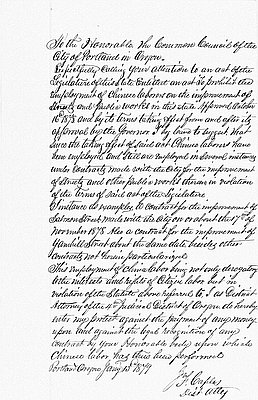 To the Honorable, The Common Council of the
City of Portland in Oregon.
Respectfully calling your attention to an act of the
Legislature of this State Entitled an act to prohibit the
Employment of Chinese laborers on the improvement of
Streets and public works in this state. Approved October
16th 1878 and by its terms taking effect from and after its
approval by the Governor I beg leave to suggest that
since the taking effect of said act Chinese laborers have
been employed and still are employed in several instances
under contracts made with the City for the improvement
of streets and other public works therein in violation
of the terms of said act of the Legislature
I instance as examples, to contract for the improvement of
Salmon Street made with the City on or about the 17th of
November 1878. Also a contract for the improvement of
Yamhill Street about the same date besides other
contracts not herein particularized
This employment of Chinese labor being not only derogatory
to the interests and rights of Citizen labor but in
violation of the Statute above referred to I as District
Attorney of the 4th Judicial District of Oregon do hereby
enter my protest against the payment of any money
upon and against the legal recognition of any
contract by your Honorable body upon which
Chinese labor has thus been performed
Portland Oregon Jany 15 1879
J. F. Caples
Dist Atty